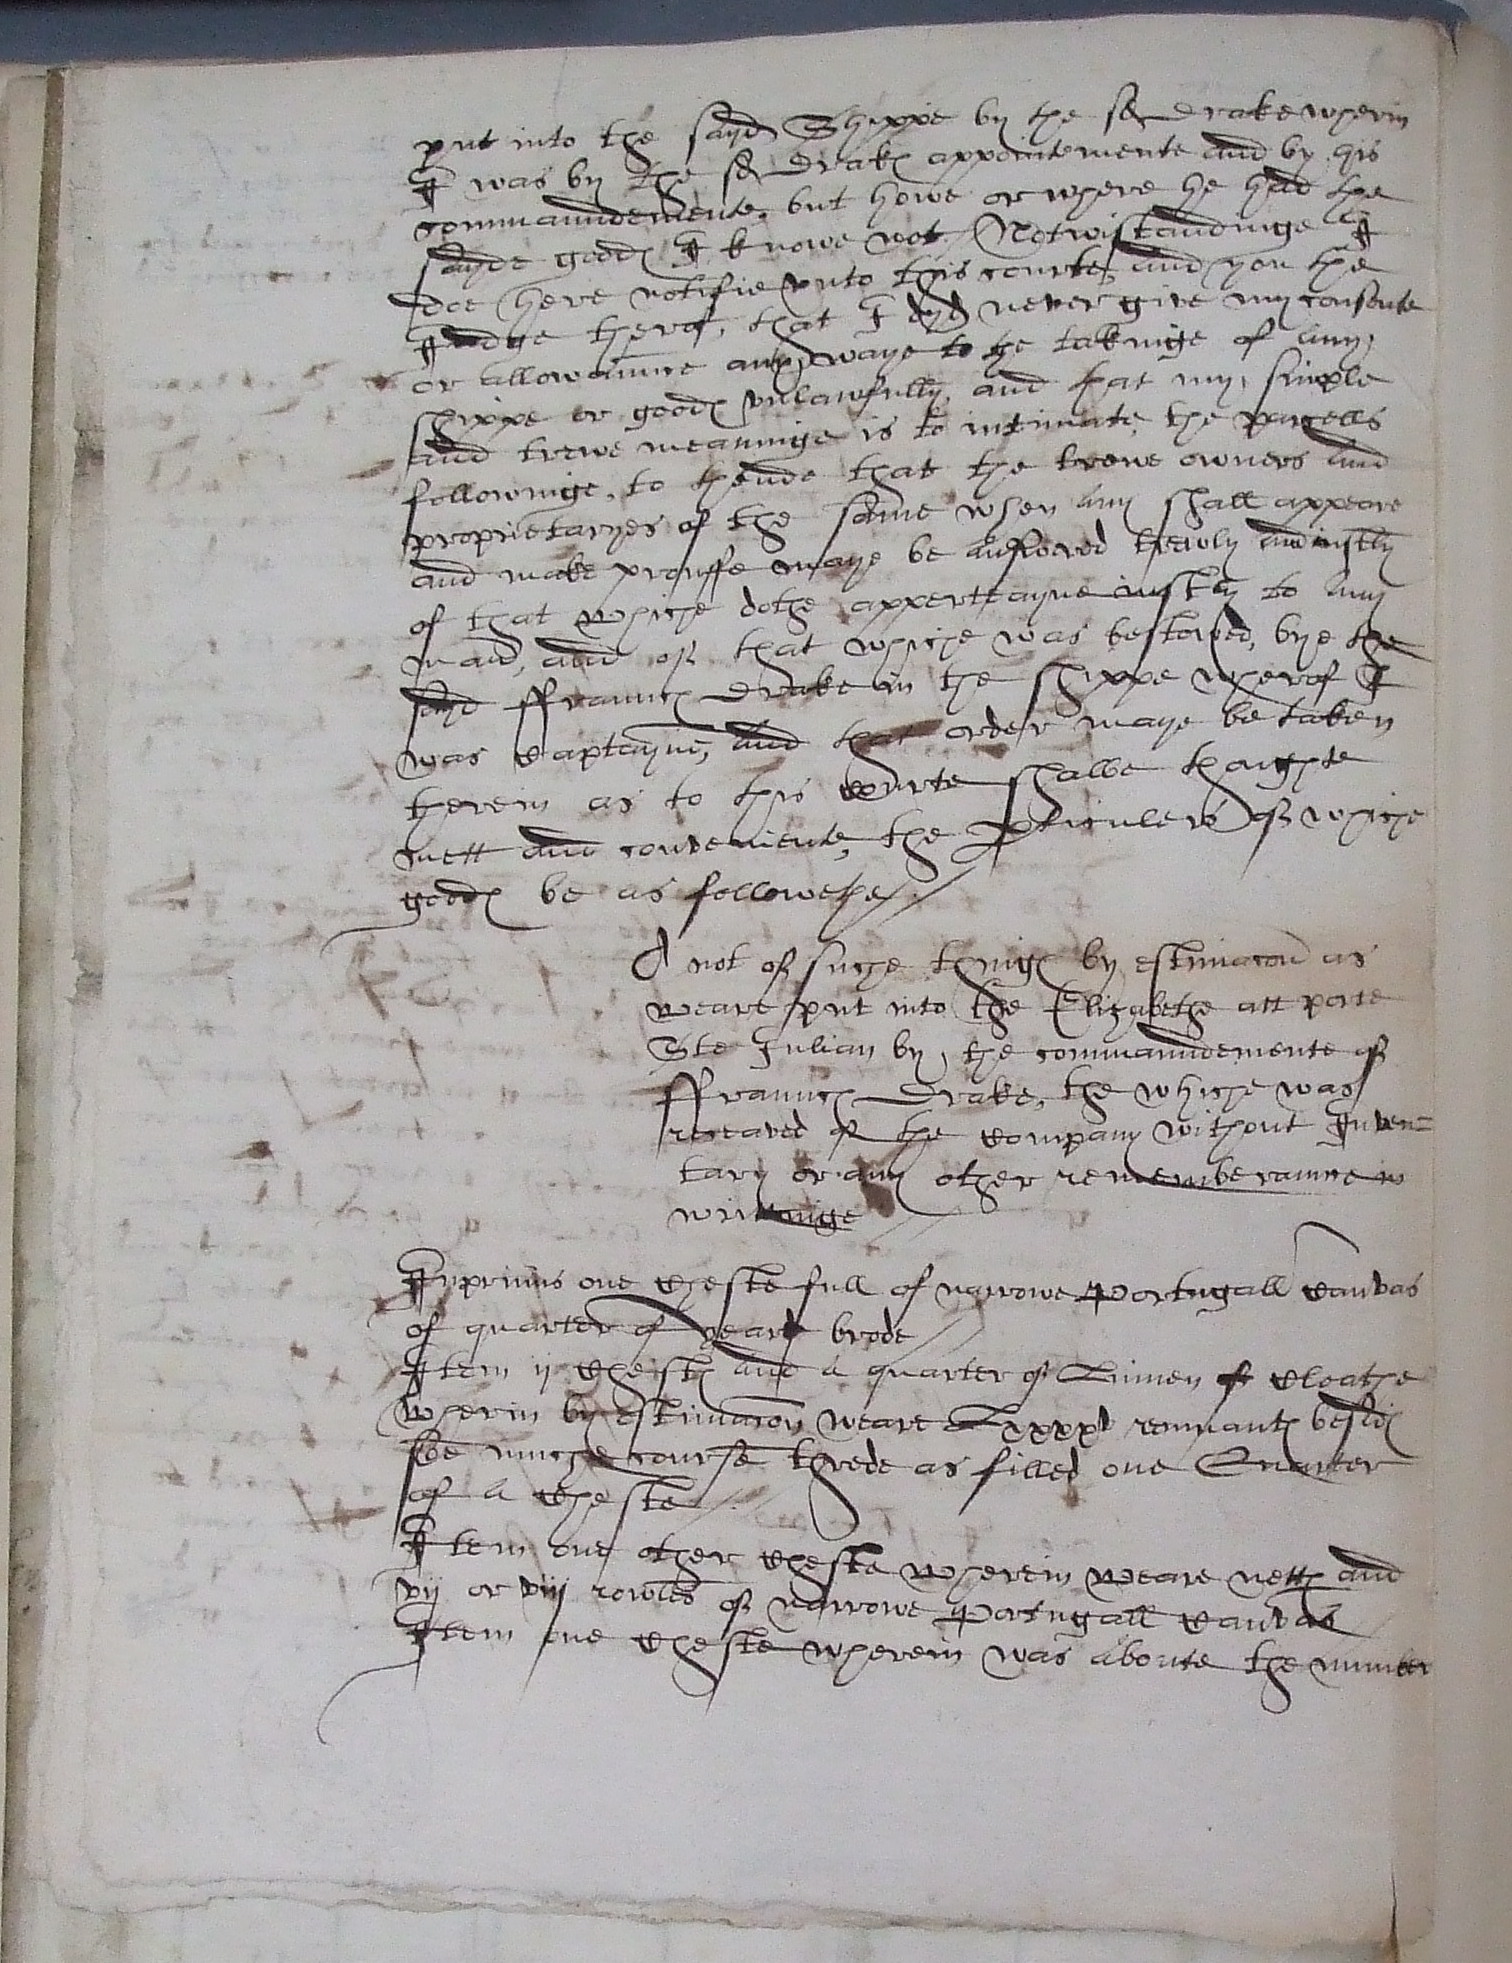 put into the sayd Shippe by the sd Drake wherin
I was by the sd Drakes appointemente and by his
commaundemente, but howe or where he had the
sayde goods I knowe not / Notwistandinge I
doe here notifie unto this courte, and you the
Judge therof, that I dyd never give my consente
or allowaunce any waye to the takinge of any
shippe or goods unlawfully, and that my simple
and trewe meaninge is to intimate the parcells
followinge, to thende that the trewe owners and
proprietaryes of the same when any shall appeare
and make prouffe maye be answered trewly and iustly
of that whiche dothe apperteayne iustly to any
man, and of that whiche was bestowed, bye the
sayd ffraunces Drake in the shippe wherof I
was Captayne, and that order maye be taken
therein as to this Courte shalbe thoughte
mett and conveniente, the pticulers of whiche
goods be as followethe //
A not of suche things by estimacon as
weare put into the Elizabethe att porte
Ste Julian by the commaundemente of
ffraunces Drake, the whiche was
receaved of the Company without Inven=
tary or any other rememberaunce in
writtinge
Inprimis one Cheste full of narrowe Portugall Canvas
of quarter of yeard brode
Item ij Chests and a quarter of Linnen Cloathe
wherin by estimacon weare Lxxxx remnants besids
so muche course threde as filled one Quarter
of a Cheste //
Item one other Cheste wherein weare netts and
vij or viij rowles of narrowe Portugall Canvas
Item one Cheste wherein was aboute the number